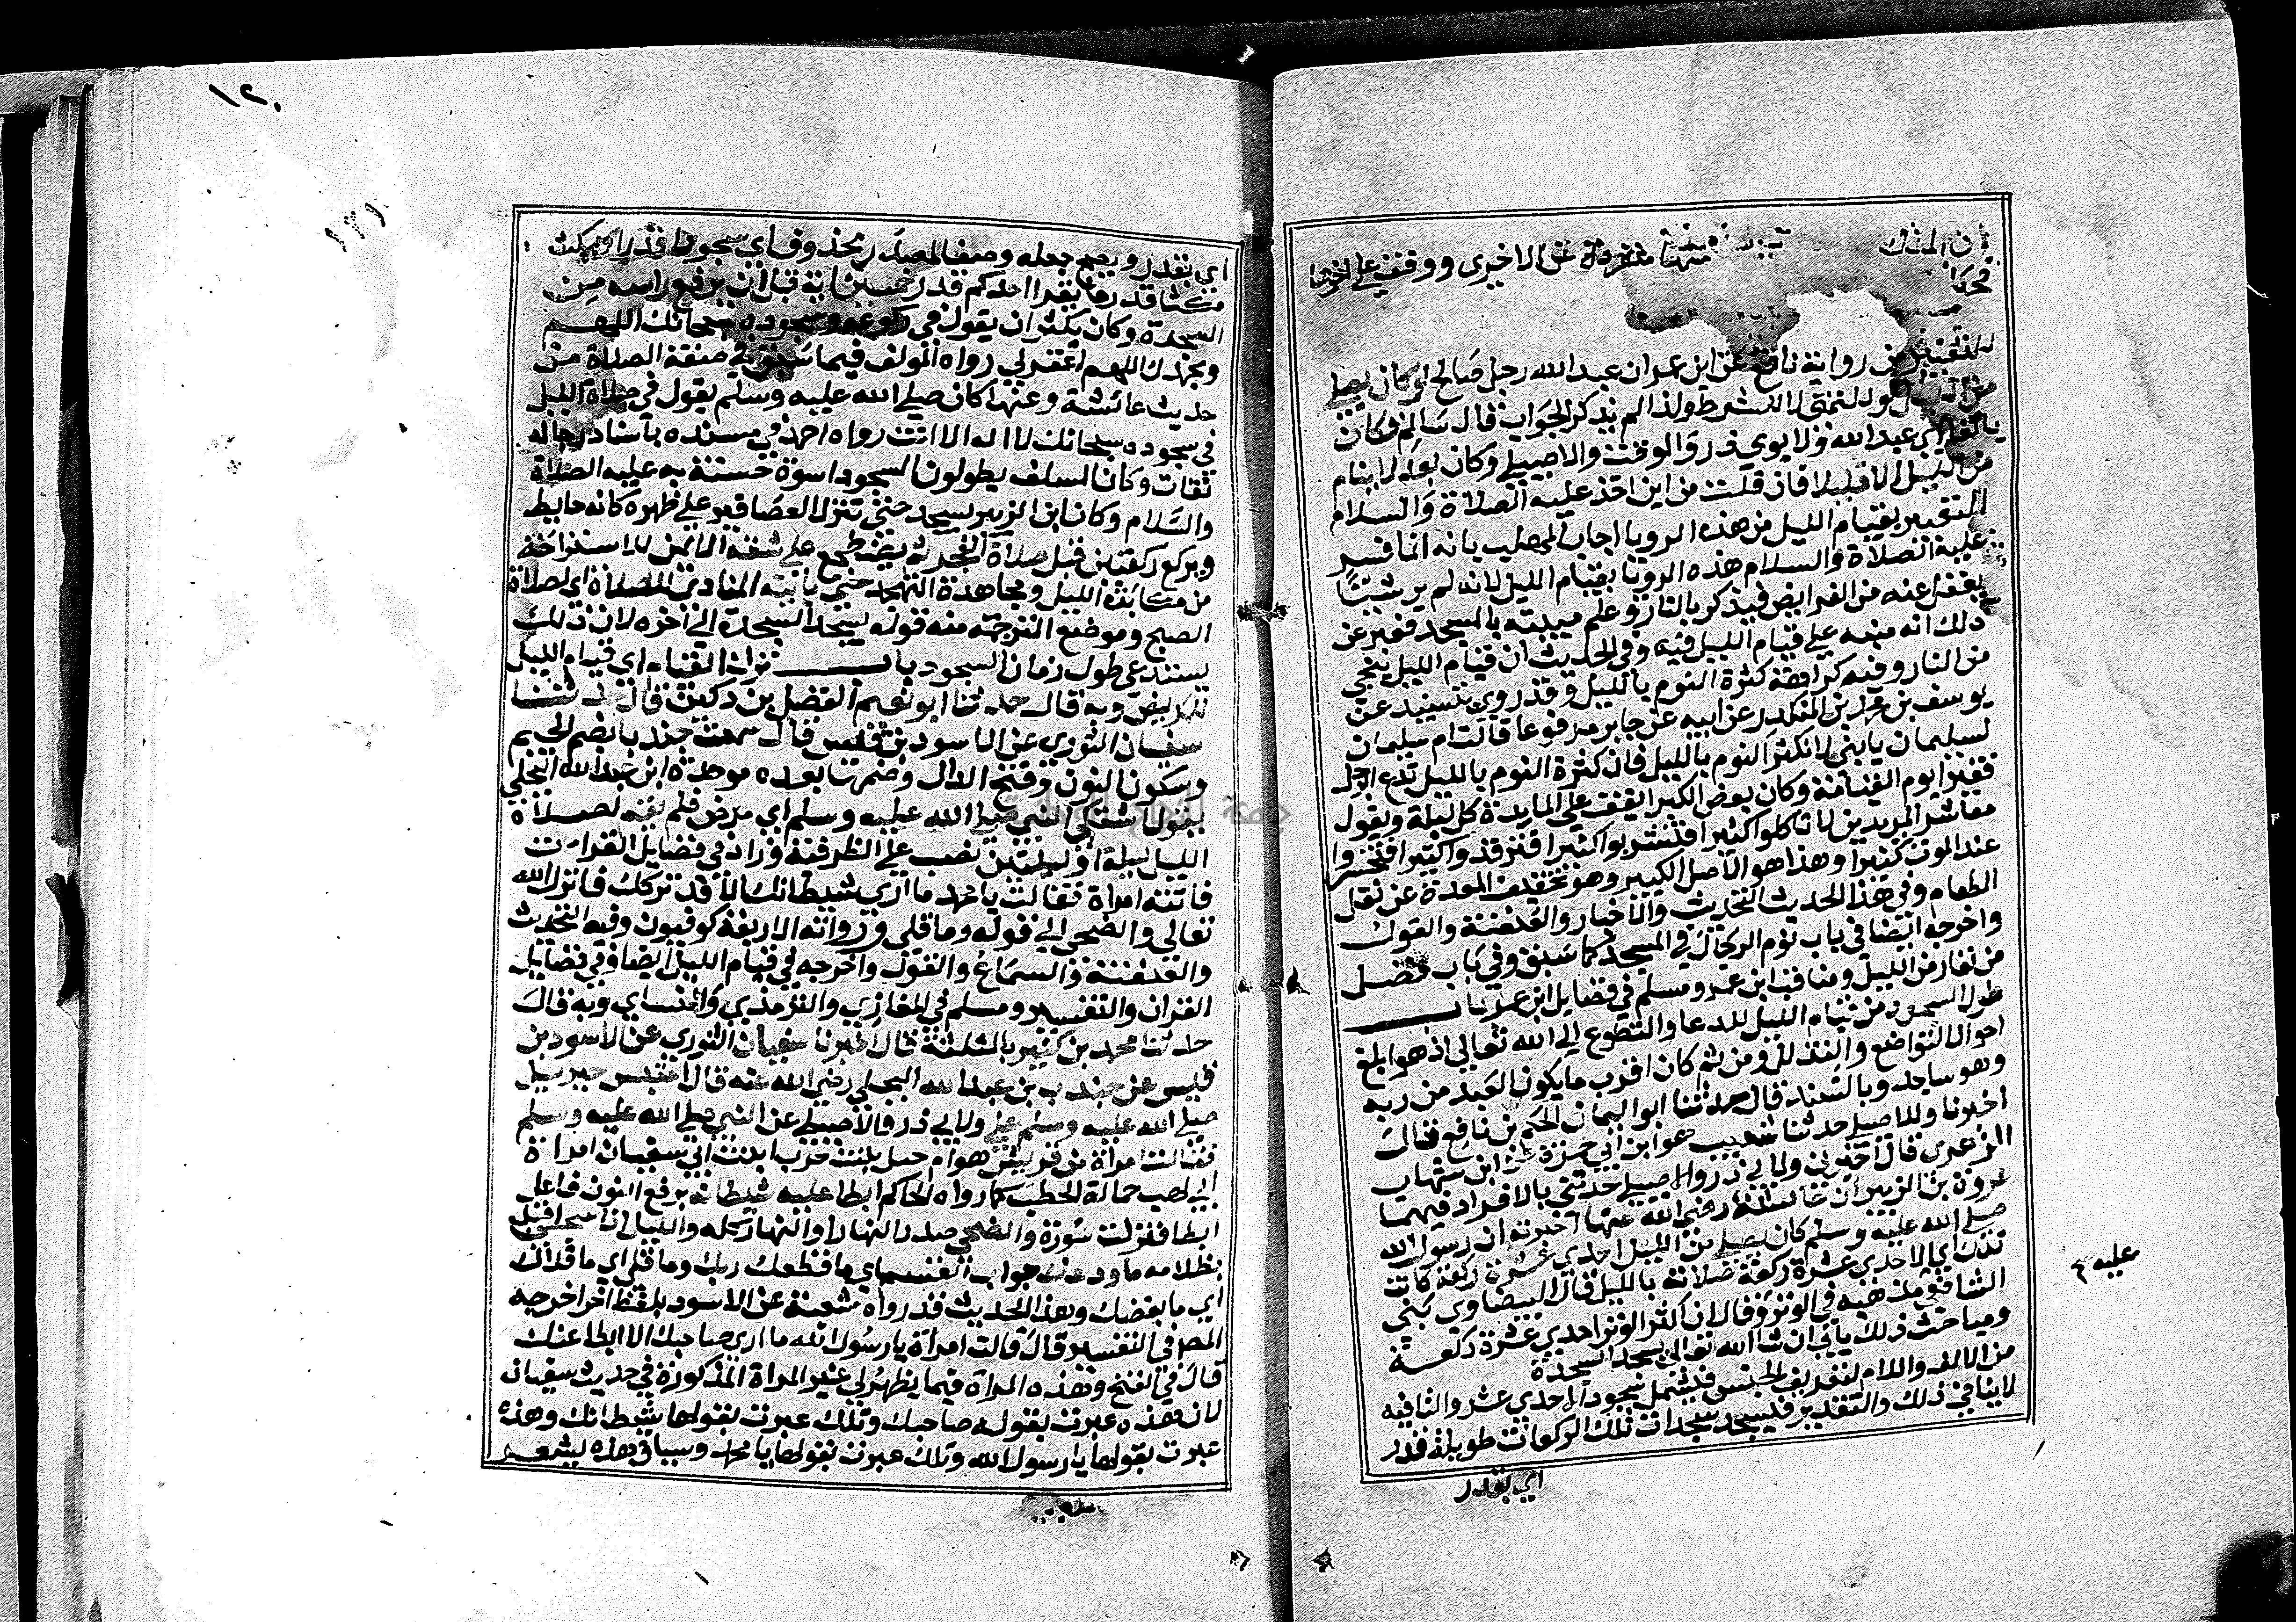 منها متفرقة عن الاخري ووقف علي اخرها
من رواية نافع عن ابن عمر ان عبد الله رجل صالح لو كان يصلي
لو للتمني لا للشرط ولذا لم يذكر الجواب قال سالم فكان
بالفا اي عبد الله ولابوي ذر والوقت والاصيلي وكان بعد لا ينام
من الليل الا قليلا فان قلت من اين اخذ عليه الصلاة والسلام
التعبير بقيام الليل من هذه الرويا اجاب المهلب بانه انما فسر
عليه الصلاة والسلام هذه الرويا بقيام الليل لانه لم ير شيئا
يغفل عنه من الفرايض فيذكر بالنار وعلم مبيته بالمسجد فعبر عن
ذلك انه منبه علي قيام الليل فيه وفي الحديث ان قيام الليل ينجي
من النار وفيه كراهة كثرة النوم بالليل وقد روي بسنيد عن
يوسف بن محمد بن المنكدر عن ابيه عن جابر مرفوعا قالت ام سليمان
لسليمان يا بني لا تكثر النوم بالليل فان كثرة النوم بالليل تدع الرجل
فقيرا يوم القيامة وكان بعض الكبرا يقف علي المايدة كل ليلة ويقول
معاشر المريدين لا تاكلوا كثيرا فتشربوا كثيرا فترقدوا كثيرا فتخسروا
عند الموت كثيرا وهذا هو الاصل الكبير وهو تخفيف المعدة عن ثقل
الطعام وفي هذا الحديث التحديث والاخبار والعنعنة والقول
واخرجه ايضا في باب نوم الرجال في المسجد كما سبق وفي باب فضل
من تعار من الليل ومناقب ابن عمر ومسلم في فضايل ابن عمر باب
طول السجود من قيام الليل للدعا والتضوع الي الله تعالي اذ هو ابلغ
احوال التواضع والتذلل ومن ثم كان اقرب ما يكون العبد من ربه
وهو ساجد وبالسند قال حدثنا ابو اليمان الحكم بن نافع قال
اخبرنا وللاصيلي حدثنا شعيب هو ابن ابي حمزة عن ابن شهاب
الزهري قال اخبرني ولابي ذر والاصيلي حدثني بالافراد فيهما
عروة بن الزبير ان عايشة رضي الله عنها اخبرته ان رسول الله
صلي الله عليه وسلم كان يصلي من الليل احدي عشرة ركعة كانت
تلك اي الاحدي عشرة ركعة صلاته بالليل قال البيضاوي بني
الشافعي مذهبه في الوتر وقال ان اكثر الوتر احدي عشرة ركعة
ومباحث ذلك ياتي ان شا الله تعالي يسجد السجدة
من الالف واللام لتعريف الجنس فيشمل سجود الاحدي عشر والتا فيه
لا ينافي ذلك والتقدير فيسجد سجدات تلك الركعات طويلة قدر
اي بقدر
عليه
١٢٠
١٢١
اي بقدر ويصح جعله وصفا لمصدر محذوف اي سجودا قدرا ويمكث
مكثا قدر ما يقرا احدكم خمسين اية قبل ان يرفع راسه من
السجدة وكان يكثر ان يقول في ركوعه وسجوده سبحانك اللهم
وبحمدك اللهم اغفر لي رواه المولف فيما سبق في صفة الصلاة من
حديث عائشة وعنها كان صلي الله عليه وسلم يقول في صلاة الليل
في سجوده سبحانك لا اله الا انت رواه احمد في مسنده باسناد رجاله
ثقات وكان السلف يطولون السجود اسوة حسنة به عليه الصلاة
والسلام وكان ابن الزبير يسجد حتي تنزل العصافير علي ظهره كانه حايط
ويركع ركعتين قبل صلاة الفجر ثم يضطجع علي شقه الايمن للاستراحة
من مكابدة الليل ومجاهدة التهجد حتي ياتيه المنادي للصلاة اي لصلاة
الصبح وموضع الترجمة منه قوله يسجد السجدة الي اخره لان ذلك
يستدعي طول زمان السجود باب ترك القيام اي قيام الليل
للمريض وبه قال حدثنا ابو نعيم الفضل بن دكين قال حدثنا
سفيان الثوري عن الاسود بن قيس قال سمعت جندبا بضم الجيم
وسكون النون وفتح الدال وضمها بعده موحدة ابن عبد الله البجلي
يقول اشتكي النبي صلي الله عليه وسلم اي مرض فلم يقم لصلاة
الليل ليلة او ليلتين نصب علي الظرفية وزاد في فضايل القران
فاتته امراة فقالت يا محمد ما اري شيطانك الا قد تركك فانزل الله
تعالي والضحي الي قوله وما قلي ورواته الاربعة كوفيون وفيه التحديث
والعنعنة والسماع والقول واخرجه في قيام الليل ايضا وفي فضايل
القران والتفسير ومسلم في المغازي والترمذي والنساي وبه قال
حدثنا محمد بن كثير بالمثلثة قال اخبرنا سفيان الثوري عن الاسود بن
قيس عن جندب بن عبد الله البجلي رضي الله عنه قال احتبس جبريل
صلي الله عليه وسلم علي ولابي ذر والاصيلي عن النبي صلي الله عليه وسلم
فقالت امراة من قريش هي ام جميل بنت حرب اخت ابي سفيان امراة
ابي لهب حمالة الحطب كما رواه الحاكم ابطا عليه شيطانه برفع النون فاعل
ابطا فنزلت سورة والضحي صدر النهار او النهار كله والليل اذا سجي اقبل
بظلامه ما ودعك جواب القسم اي ما قطعك ربك وما قلي اي ما قلاك
اي ما بغضك وهذا الحديث قد رواه شعبة عن الاسود بلفظ اخر اخرجه
المص في التفسير قال قالت امراة يا رسول الله ما اري صاحبك الا ابطا عنك
قال في الفتح وهذه المراة فيما يظهر لي غير المراة المذكورة في حديث سفيان
لان هذه عبرت بقوله صاحبك وتلك عبرت بقولها شيطانك وهذه
عبرت بقولها يا رسول الله وتلك عبرت بقولها يا محمد وسياق هذه يشعر